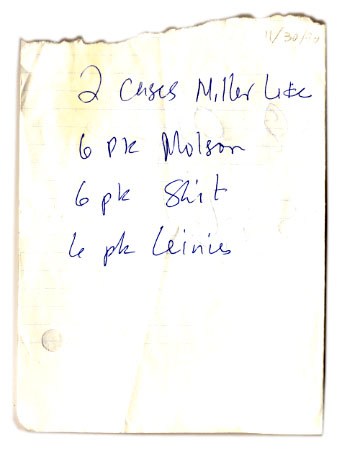 2 cases Miller Lite
6 pk Molson
6 pk Shit
6 pk Leinies